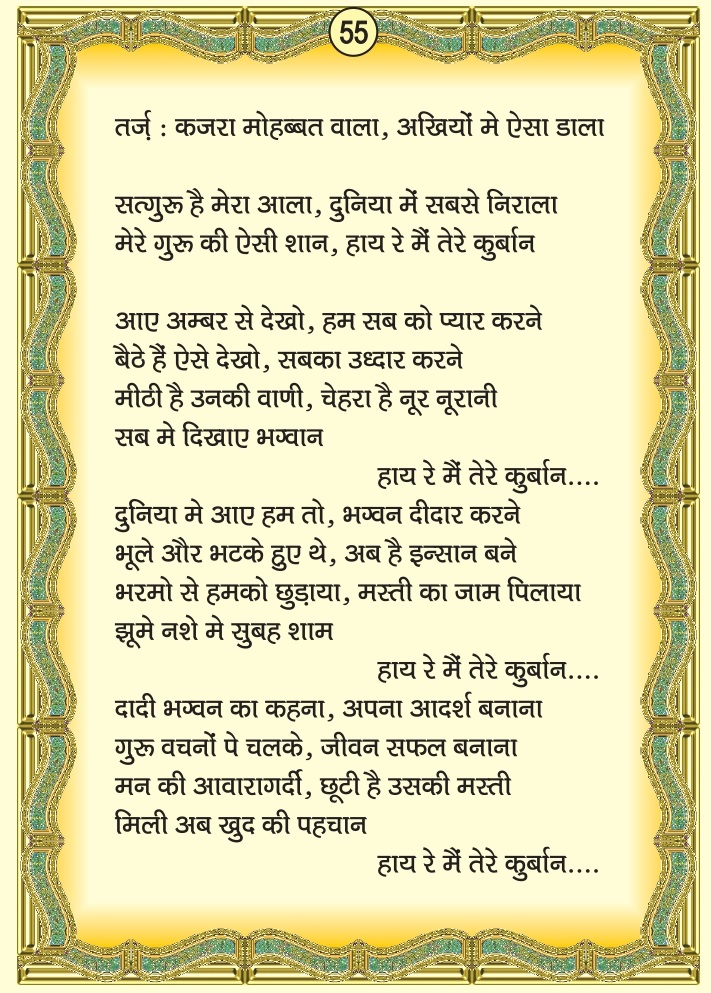 55
तर्ज़ : कजरा मोहब्बत वाला, अखियों मे ऐसा डाला
सत्गुरू है मेरा आला, दुनिया में सबसे निराला
मेरे गुरू की ऐसी शान, हाय रे मैं तेरे कुर्बान
आए अम्बर से देखो, हम सब को प्यार करने
बैठे हैं ऐसे देखो, सबका उध्दार करने
मीठी है उनकी वाणी, चेहरा है नूर नूरानी
सब मे दिखाए भग्वान
हाय रे मैं तेरे कुर्बान....
दुनिया मे आए हम तो, भग्वन दीदार करने
भूले और भटके हुए थे, अब है इन्सान बने
भरमो से हमको छुड़ाया, मस्ती का जाम पिलाया
झूमे नशे मे सुबह शाम
हाय रे मैं तेरे कुर्बान....
दादी भग्वन का कहना, अपना आदर्श बनाना
गुरू वचनों पे चलके, जीवन सफल बनाना
मन की आवारागर्दी, छूटी है उसकी मस्ती
मिली अब खुद की पहचान
हाय रे मैं तेरे कुर्बान....